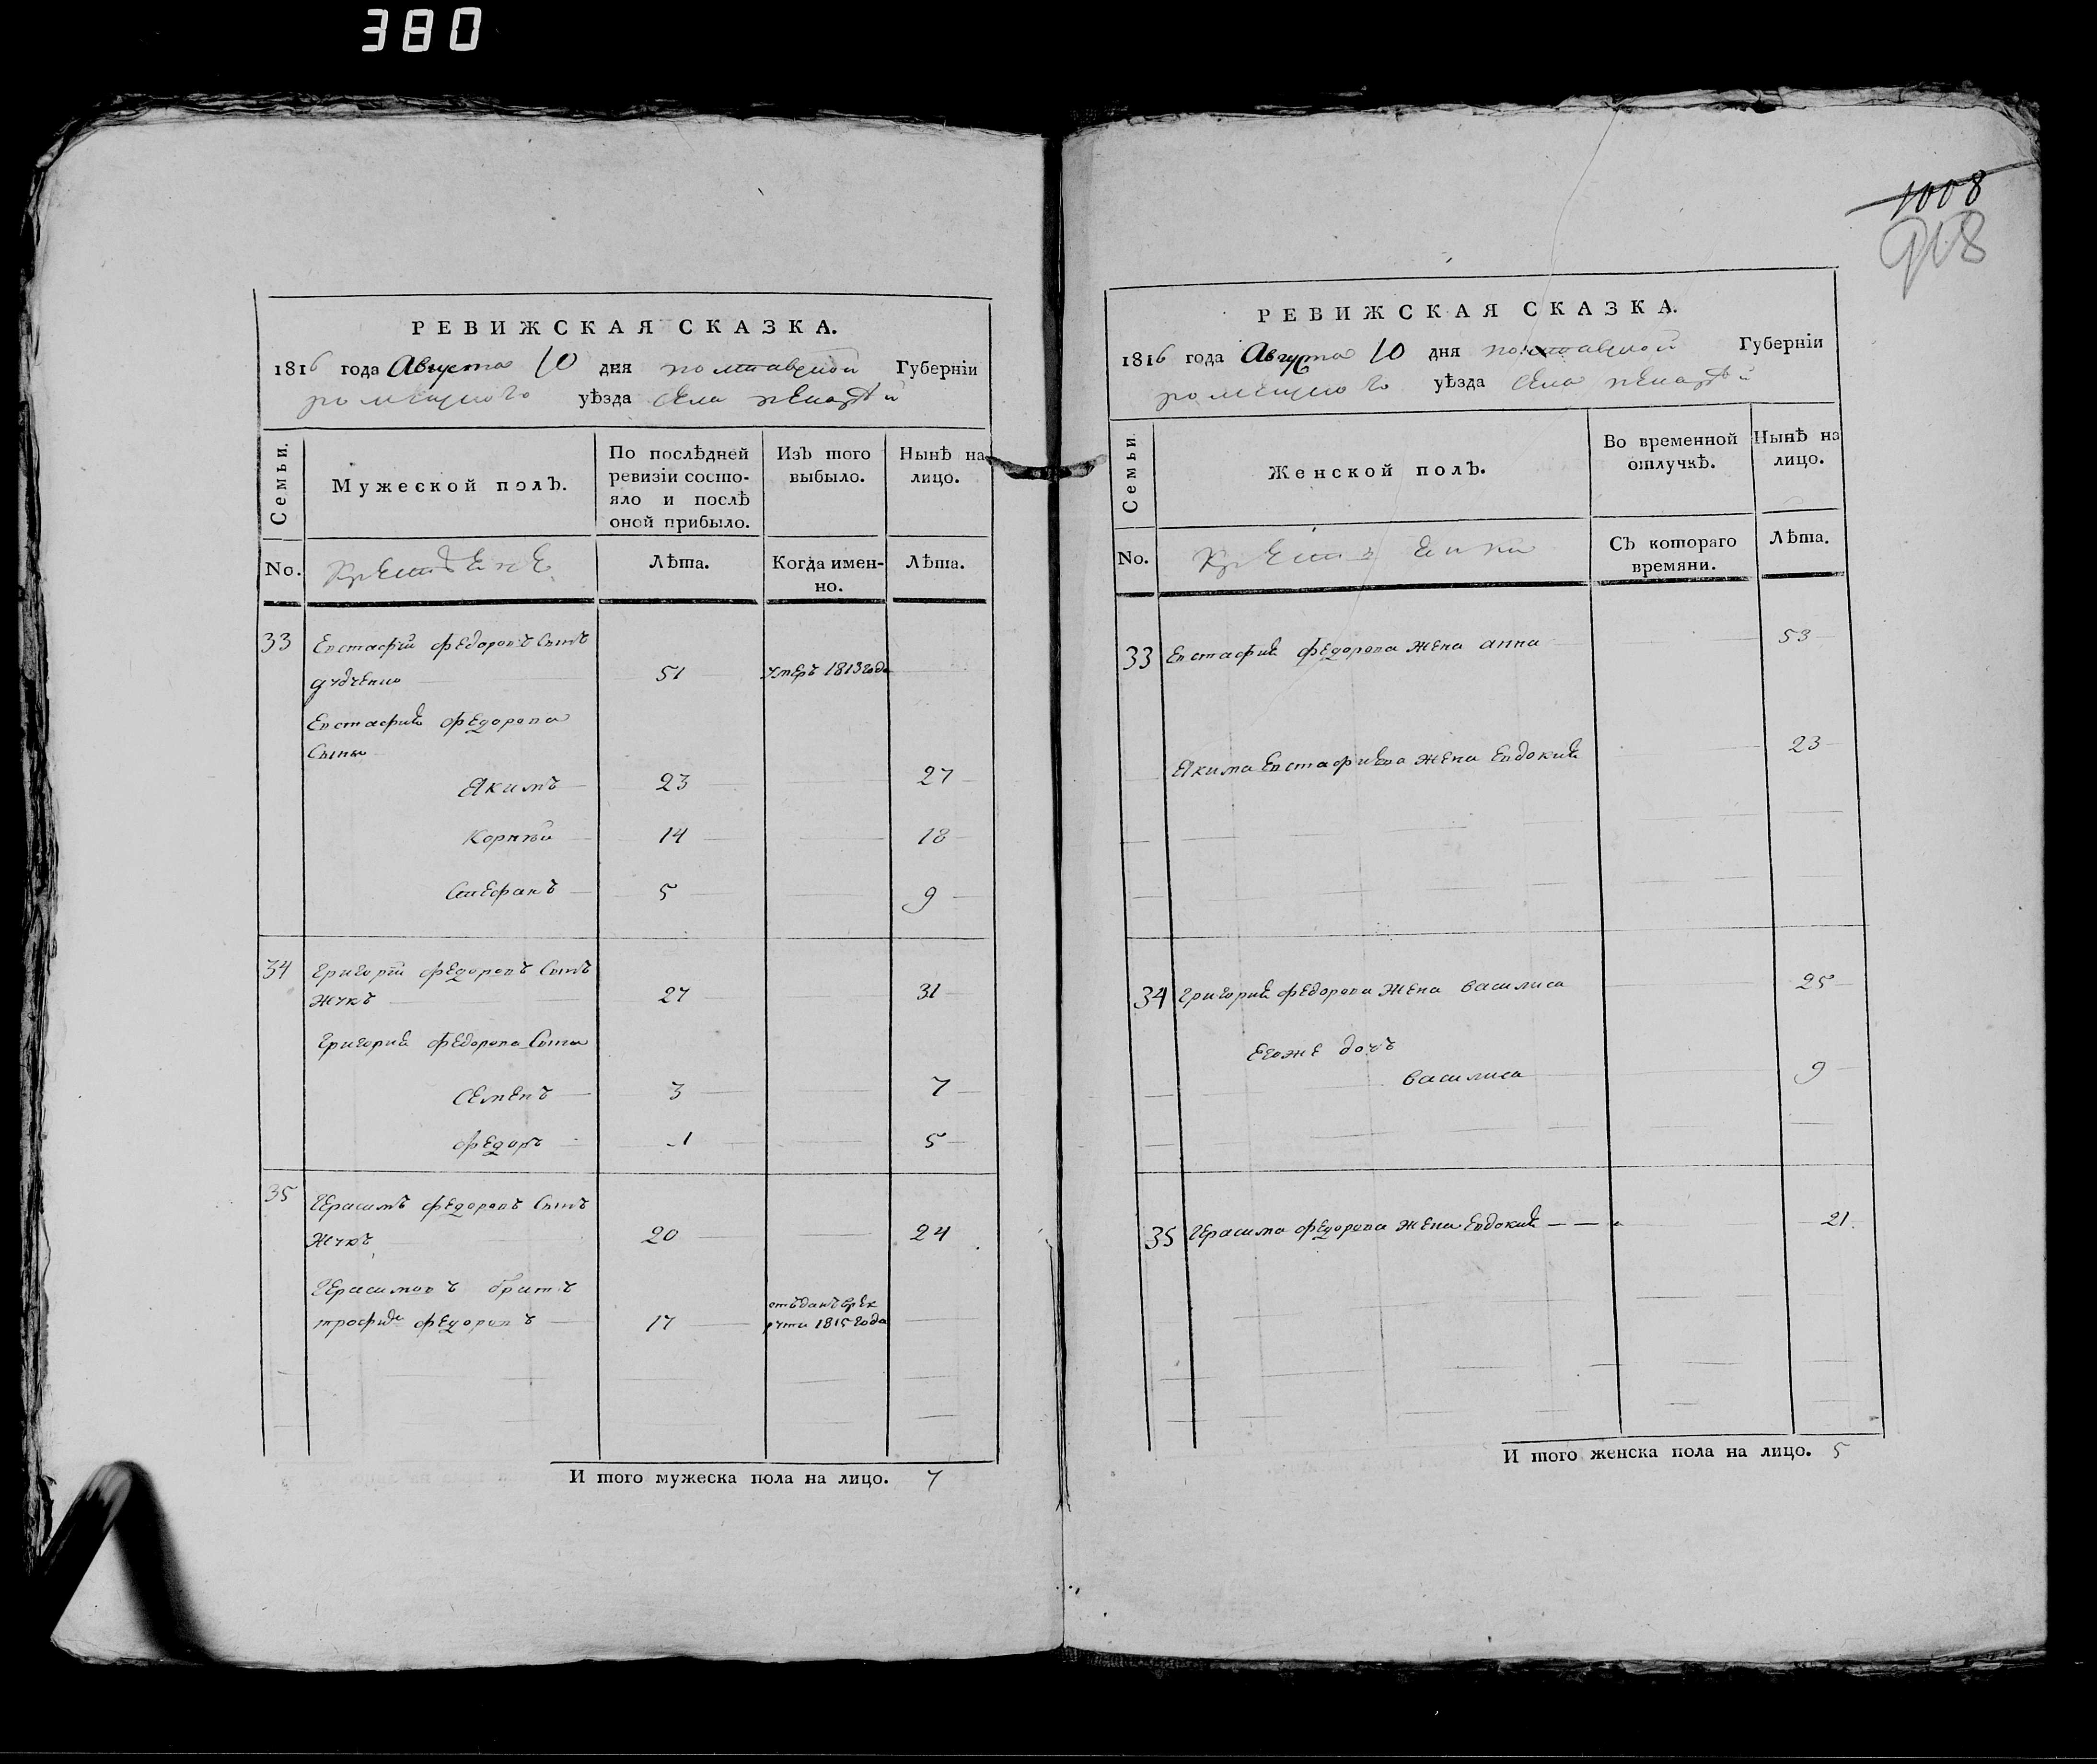 380
РЕВИЖСКАЯ СКАЗКА.
1816 года Августа 10 дня полтавской Губерніи
роменского уѣзда села
Семьи.
Мужеской полъ.
По послѣдней ревизіи состо-
яло и послѣ
оной прибыло.
Изъ того выбыло.
Нынѣ на лицо.
No.
Крестяне
Лѣта.
Когда имен-
но.
Лѣта.
33 Евстафій федоровъ сынъ
51 умеръ 1813 года
Евстафия федорова
сыны
Якимъ 23 27
Корнѣй 14 18
Стефанъ 5 9
34 григорій федоровъ сынъ
жукъ 27 31
григория федорова сыны
семенъ 3 7
федоръ 1 5
35 герасимъ федоровъ сынъ
жукъ 20 24
герасимовъ братъ
федоровъ 17 отъданъ врек
руты 1815 года
И того мужеска пола на лицо. 7
1008
908
РЕВИЖСКАЯ СКАЗКА.
1816 года Августа 10 дня полтавской Губерніи
роменского уѣзда села
Семьи.
Женской полъ.
Во временной
отлучкѣ.
Нынѣ на
лицо.
No.
Съ котораго
времяни.
Лѣта.
33 Евстафия федорова жена анна 53
Якима Евстафиева жена Евдокия 23
34 григория федорова жена василиса 25
Егоже дочъ
василиса 9
35 герасима федорова жена Евдокия 21
И того женска пола на лицо. 5